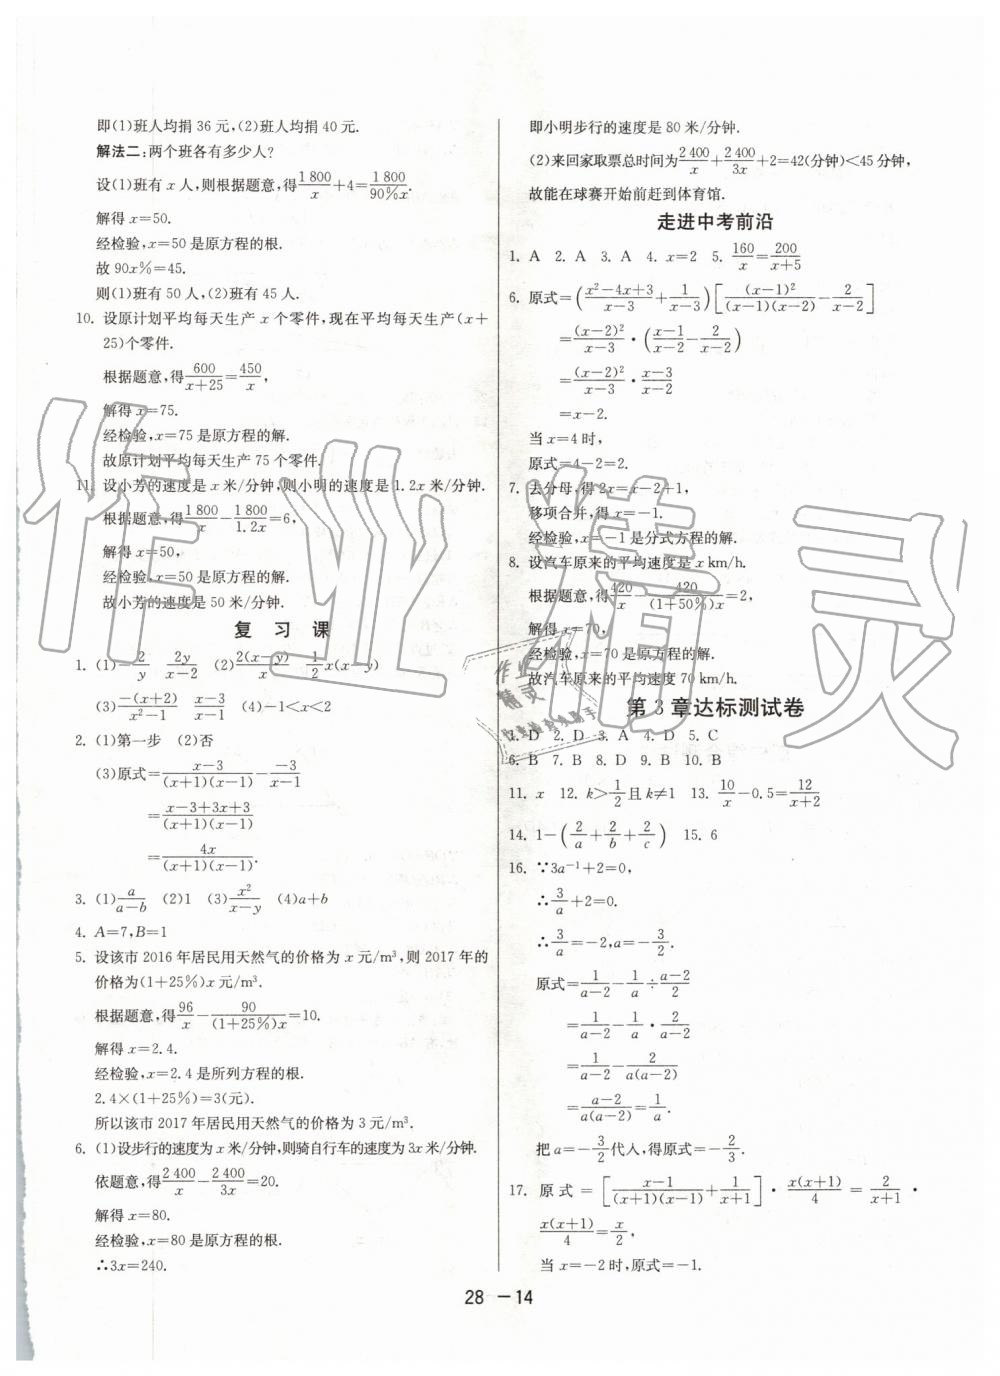 即(1)班人均捐 36 元,(2)班人均捐 40 元.
解法二:两个班各有多少人?
设(1)班有 x 人,则根据题意,得1 800/x+4=1 800/90%x.
解得 x=50.
经检验,x=50 是原方程的根.
故 90x%=45.
则(1)班有 50 人,(2)班有 45 人.
10. 设原计划平均每天生产 x 个零件,现在平均每天生产(x+
25)个零件.
根据题意,得600/(x+25)=450/x,
解得 x=75.
经检验,x=75 是原方程的解.
故原计划平均每天生产 75 个零件.
11. 设小芳的速度是 x 米/分钟,则小明的速度是 1.2x 米/分钟.
根据题意,得1 800/x-1 800/1.2x=6,
解得 x=50,
经检验,x=50 是原方程的解.
故小芳的速度是 50 米/分钟.
复 习 课
1. (1)-2/y 2y/(x-2) (2)2(x-y)/x 1/2x(x-y)
(3)-(x+2)/(x²-1) (x-3)/(x-1) (4)-1<x<2
2. (1)第一步 (2)否
(3)原式=(x-3)/((x+1)(x-1))-(-3)/(x-1)
=(x-3+3x+3)/((x+1)(x-1))
=4x/((x+1)(x-1)).
3. (1)a/(a-b) (2)1 (3)x²/(x-y) (4)a+b
4. A=7,B=1
5. 设该市 2016 年居民用天然气的价格为 x 元/m³,则 2017 年的
价格为(1+25%)x 元/m³.
根据题意,得96/x-90/((1+25%)x)=10.
解得 x=2.4.
经检验,x=2.4 是所列方程的根.
2.4×(1+25%)=3(元).
所以该市 2017 年居民用天然气的价格为 3 元/m³.
6. (1)设步行的速度为 x 米/分钟,则骑自行车的速度为 3x 米/分钟.
依题意,得2 400/x-2 400/3x=20.
解得 x=80.
经检验,x=80 是原方程的根.
∴3x=240.
即小明步行的速度是 80 米/分钟.
(2)来回家取票总时间为2 400/x+2 400/3x+2=42(分钟)<45分钟,
故能在球赛开始前赶到体育馆.
走进中考前沿
1. A 2. A 3. A 4. x=2 5. 160/x=200/(x+5)
6. 原式=((x²-4x+3)/(x-3)+1/(x-3))[(x-1)²/((x-1)(x-2))-2/(x-2)]
=(x-2)²/(x-3)·((x-1)/(x-2)-2/(x-2))
=(x-2)²/(x-3)·(x-3)/(x-2)
=x-2.
当 x=4 时,
原式=4-2=2.
7. 去分母,得 2x=x-2+1,
移项合并,得 x=-1.
经检验,x=-1 是分式方程的解.
8. 设汽车原来的平均速度是 x km/h.
根据题意,得420/x-420/((1+50%)x)=2,
解得 x=70,
经检验,x=70 是原方程的解.
故汽车原来的平均速度 70 km/h.
第 3 章达标测试卷
1. D 2. D 3. A 4. D 5. C
6. B 7. B 8. D 9. C 10. B
11. x 12. k>1/2且 k≠1 13. 10/x-0.5=12/(x+2)
14. 1-(2/a+2/b+2/c) 15. 6
16. ∵3a⁻¹+2=0,
∴3/a+2=0.
∴3/a=-2,a=-3/2.
原式=1/(a-2)-1/a÷(a-2)/2
=1/(a-2)-1/a·2/(a-2)
=1/(a-2)-2/(a(a-2))
=(a-2)/(a(a-2))=1/a.
把 a=-3/2代人,得原式=-2/3.
17. 原 式 =[(x-1)/((x+1)(x-1))+1/(x+1)]·x(x+1)/4=2/(x+1)·
x(x+1)/4=x/2,
当 x=-2时,原式=-1.
28 -14
作业精灵
作业
精灵